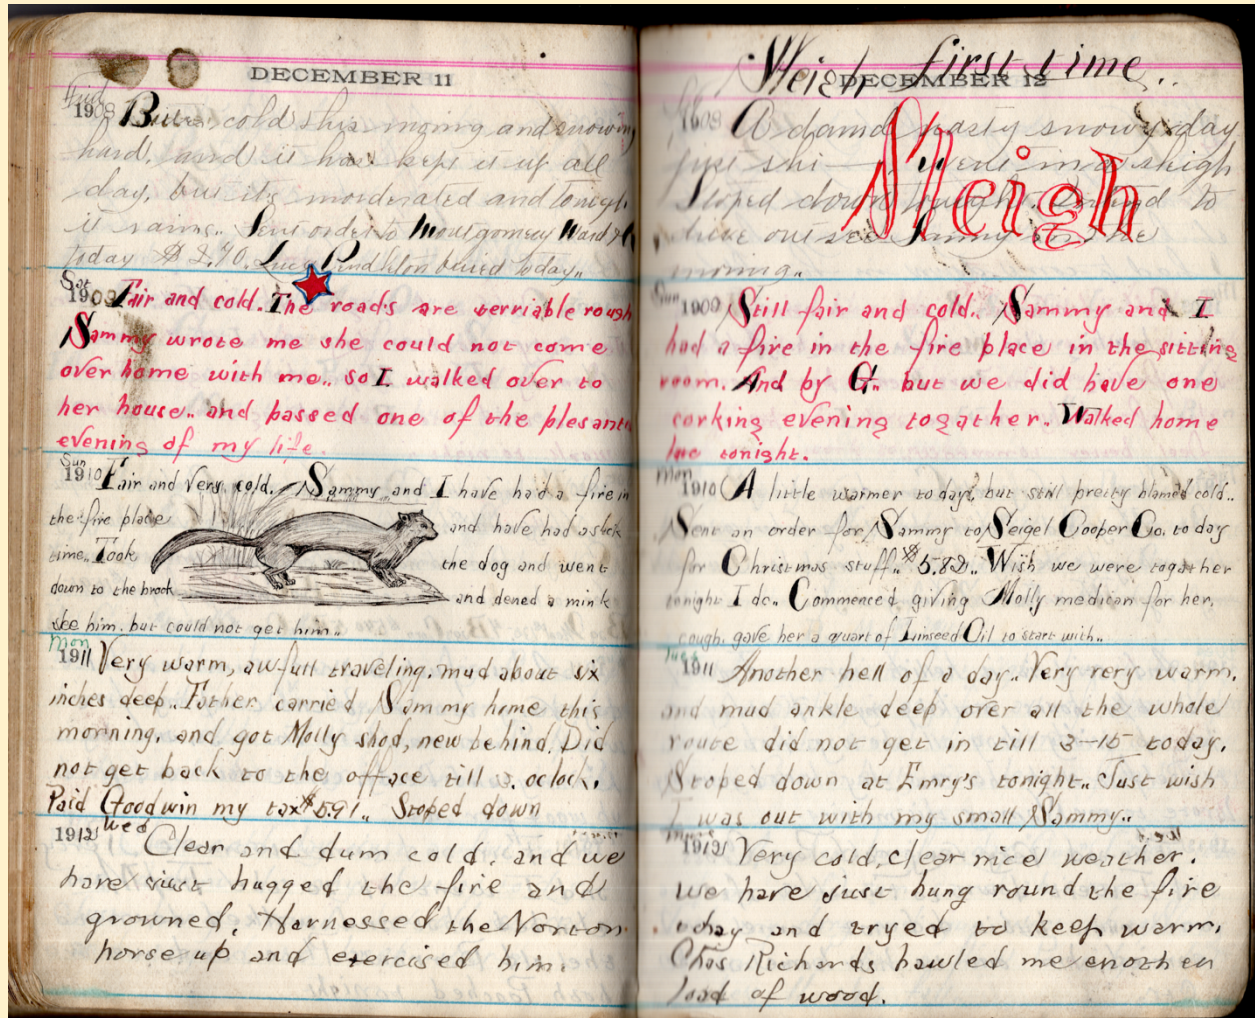 DECEMBER 11
Frid
1908 Bitter cold this moing and snowing
hard, and it has kept it up all
day, but its moderated and tonight
it rains.. Sent order to Montgomery Ward & Co
today $2.70. Lucy Pendleton buried today..
Sat
1909 Fair and cold. The roads are verriable rough
Sammy wrote me she could not come
over home with me.. so I walked over to
her house.. and passed one of the plesante
evening of my life.
Sun
1910 Fair and Very cold. Sammy and I have had a fire in
the fire place and have had a slick
time.. Took the dog and went
down to the brook and dened a mink
see him. but could not get him..
Mon
1911 Very warm, awfull traveling, mud about six
inches deep.. Father carried Sammy home this
morning, and got Molly shod, new behind. Did
not get back to the offace till 3. oclock.
Paid Goodwin my tax $5.91.. Stoped down
1912 Wed Clear and dum cold, and we
have just hugged the fire and
growned. Harnessed the Norton
horse up and exercised him.
Sleigh first time..
DECEMBER 12
1908 A damd nasty snowy day
just shi— Went in a sleigh
Sleigh
Stoped down tonight. to
drive out see Sammy in the
morning..
Sun
1909 Still fair and cold.. Sammy and I
had a fire in the fire place in the sitting
room. And by G.. but we did have one
corking evening togather. Walked home
late tonight.
Mon
1910 A little warmer to day, but still pretty blamed cold..
Sent an order for Sammy to Seigel Cooper Co. to day
for Christmas stuff.. $5.82.. Wish we were togather
tonight I do.. Commenced giving Molly medican for her,
cough. gave her a quart of Linseed Oil to start with..
Tues
1911 Another hell of a day.. Very very warm.
and mud ankle deep over all the whole
route did not get in till 3-15 today.
Stoped down at Emry's tonight.. Just wish
I was out with my small Sammy..
Thurs
1912 Very cold, clear nice weather.
we have just hung round the fire
today and tryed to keep warm.
Chas Richards hawled me enothen
load of wood.